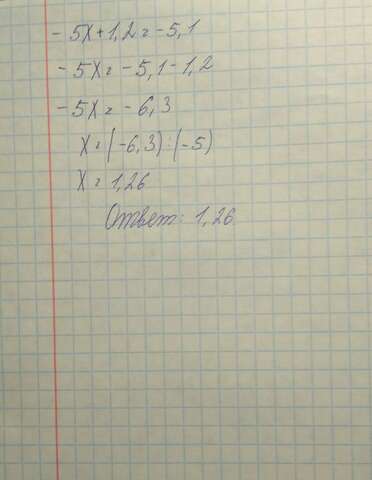 - 5x + 1,2 = -5,1
- 5x = -5,1 - 1,2
- 5x = - 6,3
x = (-6,3) : (-5)
x = 1,26
Ответ: 1,26